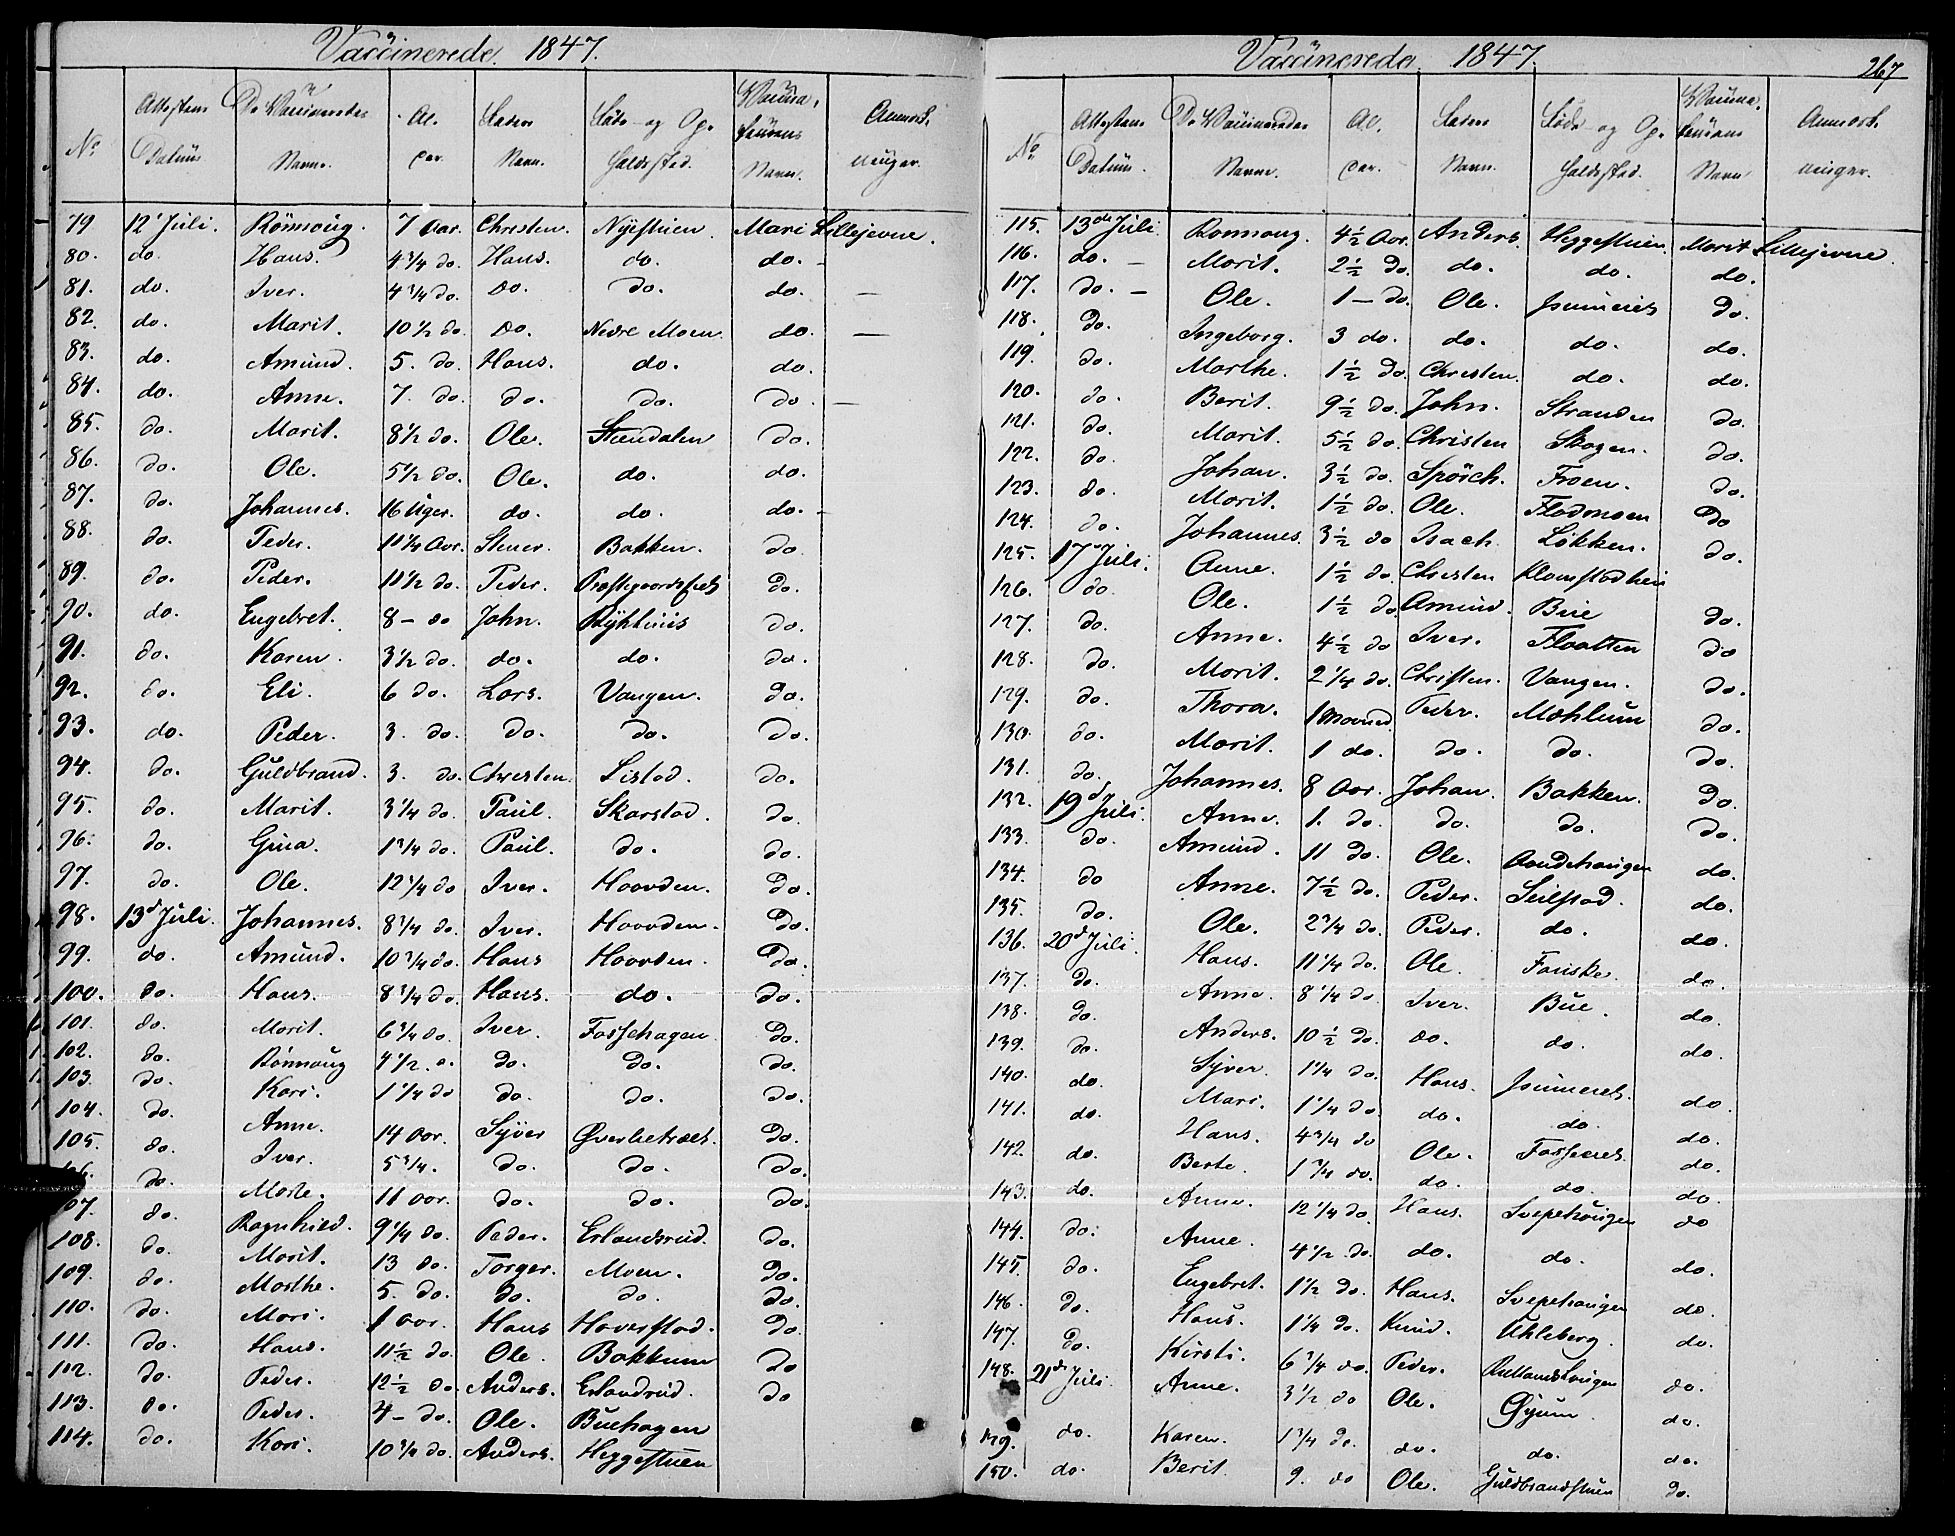 Vaccinerede 1847.
No Attestens Datum De Vaccineredes Navne. Al- der. Faders Navn. Føde- og Op- holdssted. Vaccina- teurens Navn. Anmærk- ninger.
79 12' Juli. Rönnoug. 7 Aar. Christen. Nyestuen. Mari Lillejevne.
80. do. Hans. 4 3/4 do. Hans. do. do. -
81. do. Iver. 4 3/4 do. do. do. do. -
82. do. Marit. 10 1/2 do. do. Nedre Moen. do. -
83. do. Amund. 5. do. Hans. do. do.
84. do. Anne. 7. do. do. do. do. -
85. do. Marit. 8 1/2 do. Ole. Steendalen do.
86. do. Ole. 5 1/2 do. Ole. do. do.
87. do. Johannes. 16 Uger. do. do. do. -
88. do. Peder. 11 1/4 Aar. Stener. Bakken. do.
89. do. Peder. 11 1/2 do. Peder. Præstgaardseiet do.
90. do. Engebret. 8 - do John. Rykhuus do.
91. do. Karen. 3 1/2 do. do. do. do.
92. do. Eli. 6 do. Lars. Vangen. do.
93. do. Peder. 3. do. do. do. do.
94. do. Guldbrand. 3. do. Christen. Listad. do.
95. do. Marit. 3 1/4 do. Paul. Skarstad. do.
96. do. Gina. 1 3/4 do. Paul. do. do.
97. do. Ole. 12 1/4 do Iver. Hovden. do.
98. 13d Juli. Johannes. 8 3/4 do. Iver. Hovden. do.
99. do. Amund. 10 3/4 do. Hans Hovden. do.
100. do. Hans. 8 3/4 do. Hans. do. do.
101. do. Marit. 6 3/4 do. Iver. Fossehagen. do.
102. do. Rönnoug 4 1/2. do. do. do. do.
103. do. Kari. 1 1/4 do do. do. do.
104. do. Anne. 14 Aar. Syver Øverbetræet. do.
105. do. Iver. 5 3/4. do. do. do.
106. do. Marte. 11 Aar. do. do. do.
107. do. Ragnhild. 9 1/4 do. Peder. Erlandsrud. do.
108. do. Marit. 13 do. Torger. Moen. do.
109. do. Marthe. 5. do. do. do. do.
110. do. Mari. 1 Aar. Hans Haverstad. do.
111. do. Hans. 11 1/2 do. Ole. Bakkum do
112. do. Peder. 12 1/2 do. Anders. Erlandrud. do
113. do. Peder. 4 - do. Ole. Buehagen
114. do. Kari. 10 3/4 do. Anders. Heggestuen
Vaccinerede 1847.
267
No Attestens Datum. De Vaccineredes Navne. Al- der. Faders Navn. Føde- og Op- holdssted. Vaccina- teurens Navn Anmærk- ninger.
115. 13de Juli. Ronnoug. 4 1/2 Aar. Anders. Heggestuen. Marit Lillejevne.
116. do. - Marit. 2 1/2 do. do. do. do.
117. do. - Ole. 1 - do. Ole. do.
118. do. Ingeborg. 3 do. do. do. do.
119. do. Marthe. 1 1/2 do. Christen. do. do.
120. do. Berit. 9 1/2 do. John. Stranden do.
121. do. Marit. 5 1/2 do. Christen Skogen. do.
122. do. Johan. 3 1/2 do. Spörck. Froen. do.
123. do. Marit. 1 1/2 do. Ole. Fladmoen do
124. do. Johannes. 3 1/2 do Isach. Løkken. do.
125. 17 Juli. Anne. 1 1/2 do. Christen Klomstadhei
126. do. Ole. 1 1/2 do Amund. Bue do.
127. do. Anne. 4 1/2 do Iver. Flaatten do
128. do. Marit. 2 1/4 do. Christen. Vangen. do.
129. do. Thora. 1 Maaned Peder. Mæhlum do.
130. do. Marit. 1 do. do. do. do.
131. do. Johannes. 8 Aar. Johan. Bakken. do.
132. 19d Juli. Anne. 1. do. do. do. do.
133. do. Amund. 11 do. Ole. do.
134. do Anne. 7 1/2 do. Peder. Seilstad. do.
135. do. Ole. 2 3/4 do. Peder. do. do.
136. 20d Juli. Hans. 11 1/4 do. Ole. Fauske. do.
137. do. Anne. 8 1/4 do Iver. Bue. do.
138. do. Anders. 10 1/2 do. do. do. do.
139. do. Syver. 1 1/4 do. Hans. do.
140. do. Mari. 1 1/4 do. do. do. do.
141. do. Hans. 4 3/4 do Ole. Fosseeiet. do.
142. do. Berte. 1 3/4 do. do. do. do.
143. do. Anne. 12 1/4 do. Hans. Svepehougen do
144. do. Anne. 4 1/2 do. do. do. do.
145. do. Engebret. 1 1/2 do. Hans. Svepehougen do.
146. do. Hans. 1 1/4 do. Knud. Uhleberg. do.
147. do. Kirsti. 6 3/4 do. Peder. do.
148. 21de Juli. Anne. 3 1/2 do Ole. Øyum do.
149. do. Karen. 1 3/4 do. do. do. do.
150. do. Berit. 9. do Ole. Guldbrandstuen do.